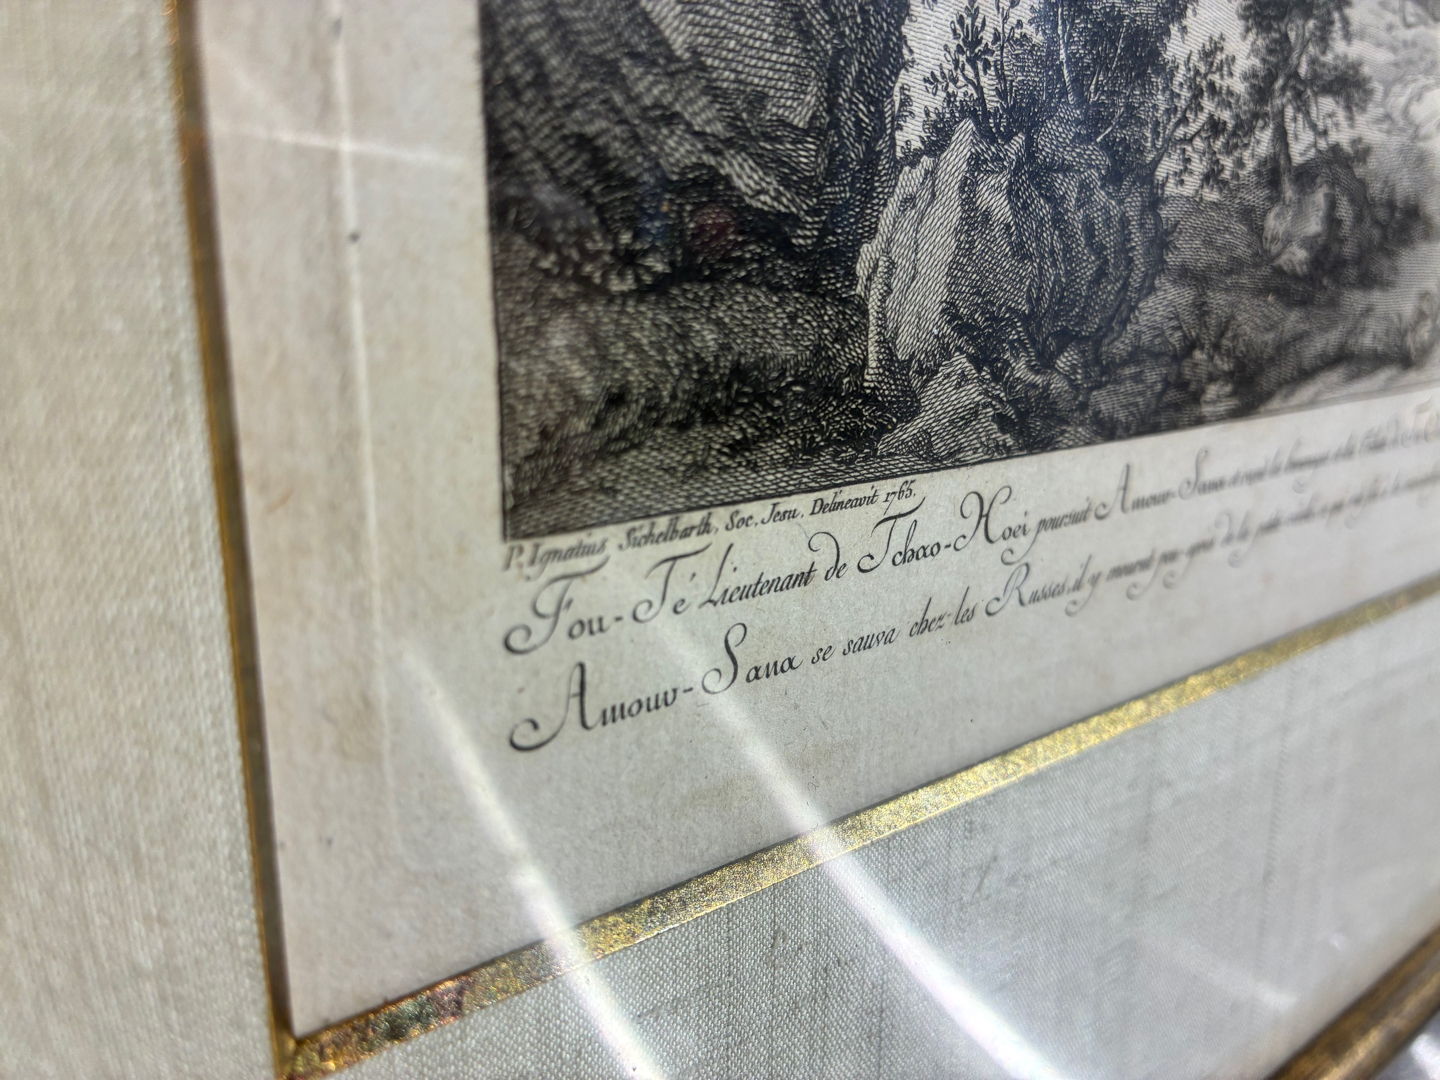 P. Ignatius Sichelbarth, Soc. Jesu, Delineavit 1765.
Fou-Té Lieutenant de Tchao-Hoei poursuit Amour-Sana et reçut les hommages
Amour-Sana se sauva chez les Russes, il y mourut peu après de la petite